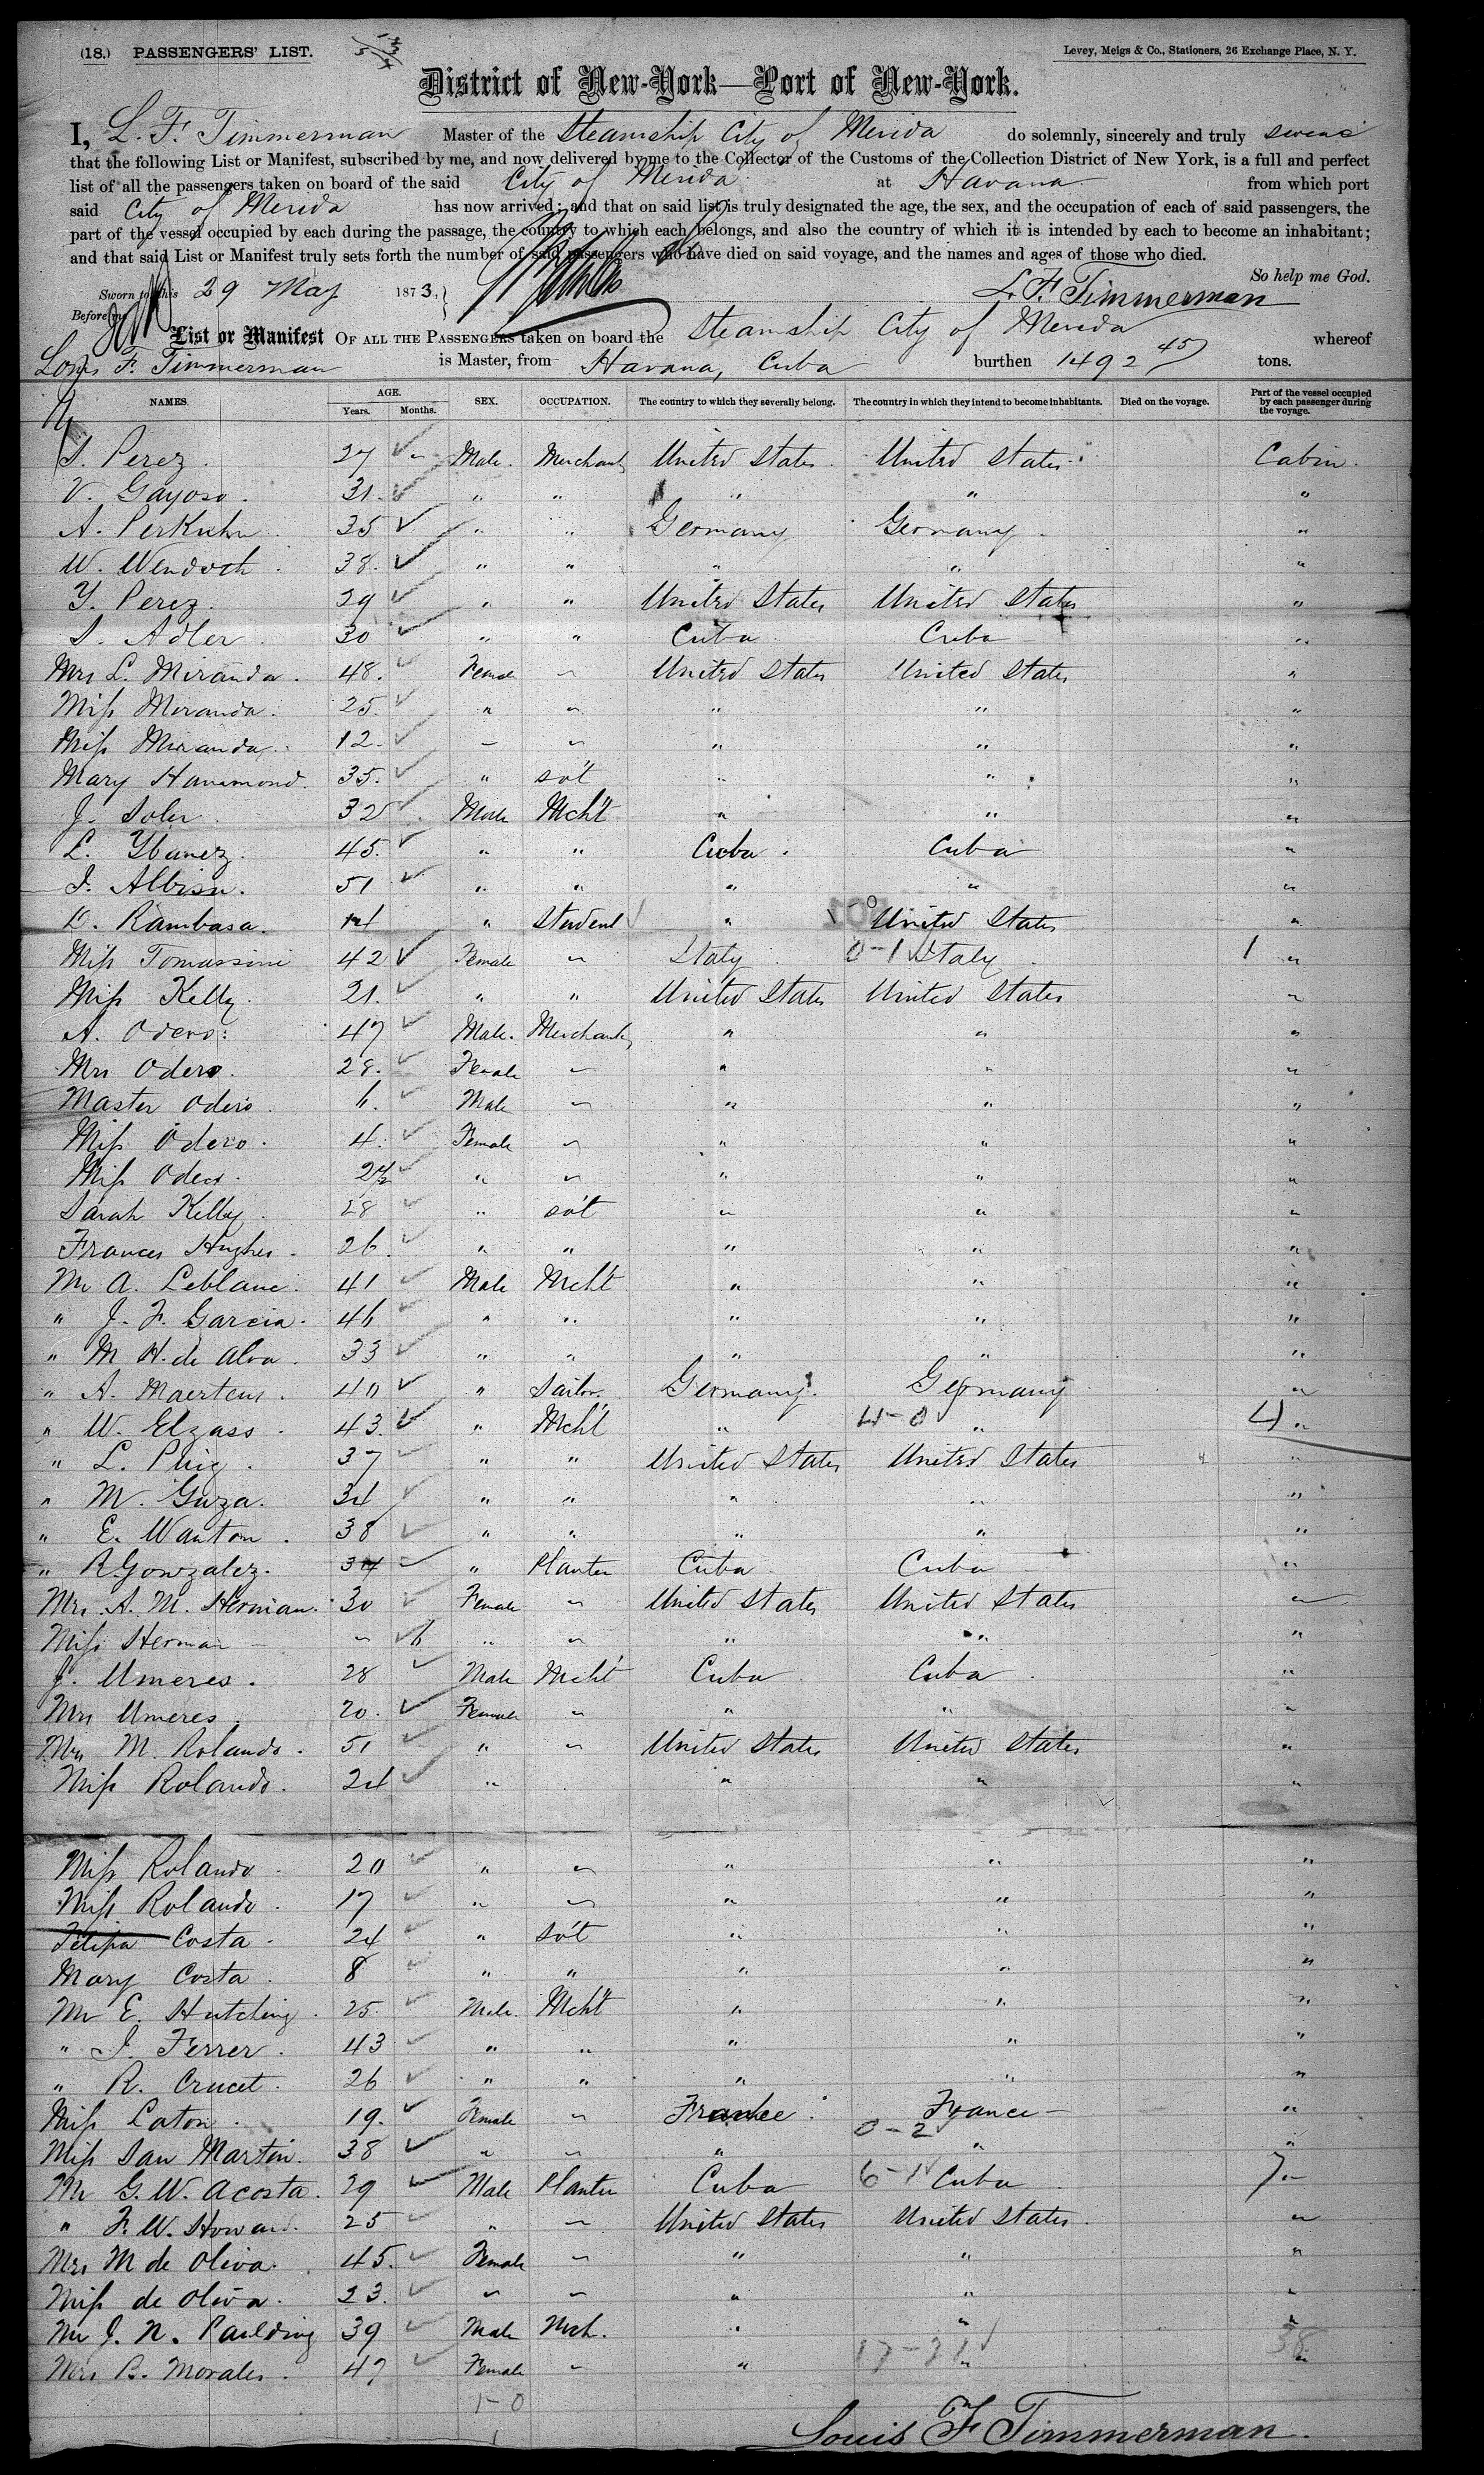 (18.) PASSENGERS' LIST.
Levey, Meigs & Co., Stationers, 26 Exchange Place, N. Y.
District of New-York—Port of New-York.
I, L. F. Timmerman Master of the Steamship City of Merida do solemnly, sincerely and truly swear
that the following List or Manifest, subscribed by me, and now delivered by me to the Collector of the Customs of the Collection District of New York, is a full and perfect
list of all the passengers taken on board of the said City of Merida at Havana from which port
said City of Merida has now arrived; and that on said list is truly designated the age, the sex, and the occupation of each of said passengers, the
part of the vessel occupied by each during the passage, the country to which each belongs, and also the country of which it is intended by each to become an inhabitant;
and that said List or Manifest truly sets forth the number of said passengers who have died on said voyage, and the names and ages of those who died.
So help me God.
Sworn to this 29 May 1873, L. F. Timmerman
Before me
List or Manifest OF ALL THE PASSENGERS taken on board the Steamship City of Merida whereof
Louis F. Timmerman is Master, from Havana, Cuba burthen 1492 45 tons.
NAMES. AGE. Years. Months. SEX. OCCUPATION. The country to which they severally belong. The country in which they intend to become inhabitants. Died on the voyage. Part of the vessel occupied by each passenger during the voyage.
S. Perez. 27 Male. Merchant United States United States Cabin.
V. Gayoso. 31 " " " " "
A. Perkuhn 35 " " Germany Germany "
W. Wendoth 38 " " " " "
Y. Perez. 29 " " United States United States "
S. Adler 30 " " Cuba Cuba "
Mrs L. Miranda. 48. Female United States United States "
Miss Miranda. 25. " " " "
Miss Miranda. 12 " " "
Mary Hammond. 35. " sv't " " "
J. Soler 32 Male Mcht " " "
L. Ybanez. 45. " " Cuba Cuba "
J. Albisu. 51 " " " " "
D. Rambasa. 14 " Student " United States "
Miss Tomassini 42 Female Italy 0-1 Italy 1 "
Miss Kelly. 21. " " United States United States "
A. Odero. 47 Male. Merchant " " "
Mrs Odero. 28. Female " " "
Master Odero 6. Male " " "
Miss Odero. 4. Female " " "
Miss Odero. 2 " " " "
Sarah Kelly 28 " sv't " " "
Frances Hughes. 26 " " " " "
Mr A. Leblanc. 41 Male Mcht " " "
" J. F. Garcia. 46 " " " " "
" M H. de Alva. 33 " " " " "
" A. Maertens. 40 " Sailor. Germany. Germany "
" W. Elzass. 43. " Mcht " 4-0 " 4 "
" L. Puig. 37 " " United States United States "
" M. Guza. 34 " " " " "
" E. Wanton. 38 " " " " "
" R. Gonzalez. 34 " Planter Cuba Cuba "
Mrs. A. M. Herman. 30 Female United States United States "
Miss Herman 6 " " " "
J. Umeres. 28 Male Mcht Cuba Cuba "
Mrs Umeres. 20. Female " " "
Mrs M. Rolando. 51 " United States United States "
Miss Rolando. 24 " " " "
Miss Rolando. 20 " " " "
Miss Rolando. 17 " " " "
Felipa Costa. 24 " sv't " " "
Mary Costa. 8 " " " " "
Mr E. Hutching. 25. Male. Mcht " " "
" J. Ferrer. 43 " " " " "
" R. Crucet. 26 " " " " "
Miss Caton. 19. Female France France "
Miss San Martin. 38 " " 0-2 " "
Mr G. W. Acosta. 29 Male Planter Cuba 6-1 Cuba 7
" F. W. Howard. 25 " United States United States "
Mrs M de Oliva. 45. Female " " "
Miss de Oliva. 23. " " "
Mr J. N. Paulding 39 Male Mch. " " "
Mrs B. Morales. 47 Female " 17-21 " 38
1-0
1
Louis F Timmerman.